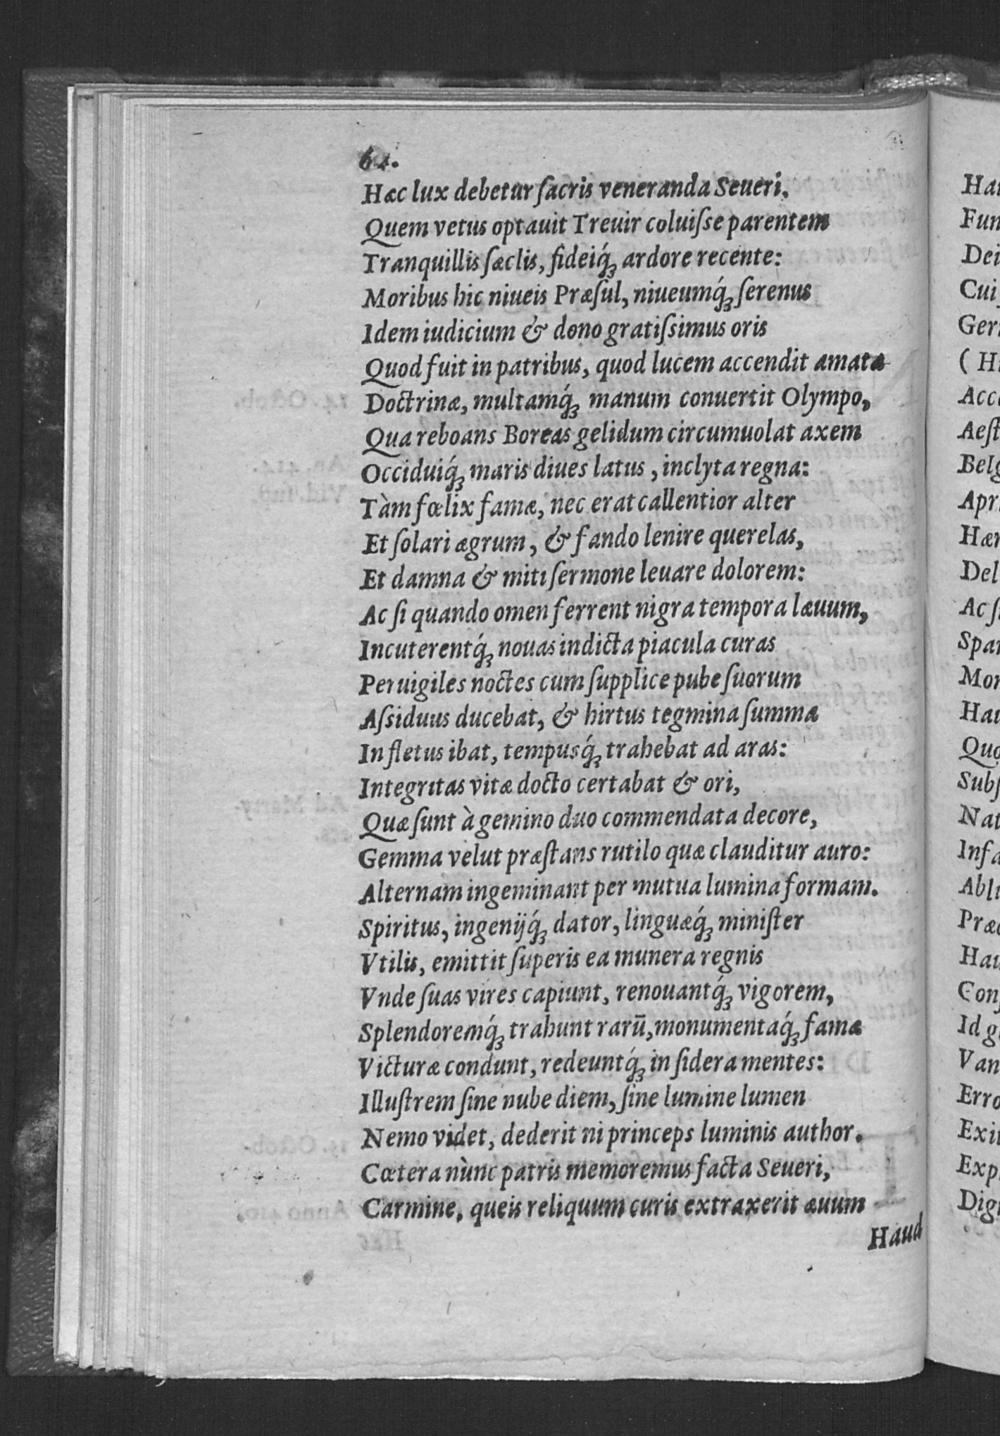 64.
Hæc lux debetur ſacris veneranda Seueri.
Quem vetus optauit Treuir coluiſſe parentem
Tranquillis ſæclis, fideiq́ꝫ ardore recente:
Moribus hic niueis Præſul, niueumq́ꝫ ſerenus
Idem iudicium & dono gratiſsimus oris
Quod fuit in patribus, quod lucem accendit amatæ
Doctrinæ, multamq́ꝫ manum conuertit Olympo,
Qua reboans Boreas gelidum circumuolat axem
Occiduiq́ꝫ maris diues latus, inclyta regna:
Tàm fœlix famæ, nec erat callentior alter
Et ſolari ægrum, & fando lenire querelas,
Et damna & miti ſermone leuare dolorem:
Ac ſi quando omen ferrent nigra tempora læuum,
Incuterentq́ꝫ nouas indicta piacula curas
Peruigiles noctes cum ſupplice pube ſuorum
Aſsiduus ducebat, & hirtus tegmina ſumma
In fletus ibat, tempusq́ꝫ trahebat ad aras:
Integritas vitæ docto certabat & ori,
Quæ ſunt à gemino duo commendata decore,
Gemma velut præſtans rutilo quæ clauditur auro:
Alternam ingeminant per mutua lumina formam.
Spiritus, ingenijq́ꝫ dator, linguæq́ꝫ miniſter
Vtilis, emittit ſuperis ea munera regnis
Vnde ſuas vires capiunt, renouantq́ꝫ vigorem,
Splendoremq́ꝫ trahunt rarũ, monumentaq́ꝫ famæ
Victuræ condunt, redeuntq́ꝫ in ſidera mentes:
Illuſtrem ſine nube diem, ſine lumine lumen
Nemo videt, dederit ni princeps luminis author.
Cœtera nùnc patris memoremus facta Seueri,
Carmine, queis reliquum curis extraxerit æuum
Haud
Fun
Dei
Cui
Ger
Acc
Belg
Apr
Del
Ac ſ
Spa
Mor
Quo
Subſ
Nat
Inf
Præ
Conſ
Id g
Van
Erro
Exi
Exp
Dig